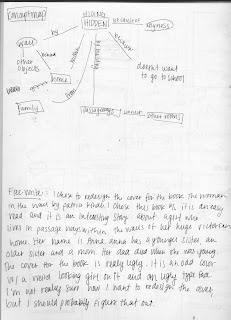 Concept map
HIDING
HIDDEN
because of
shyness
by
wall
behind
within
because
doesn't want
to go to school
other
objects
home
from
family
passageways
other rooms
Free-write: I chose to redesign the cover for the book The woman
in the wall by patrice Kindl. I chose this book bc it is an easy
read and it is an interesting story about a girl who
lives in passage ways within the walls of her huge victorian
home. Her name is Anna. Anna has a younger sister, an
older sister and a mom. Her dad died when she was young.
The cover for the book is really ugly. It is an odd color
w/ a weird looking girl on it and an ugly type face.
I'm not really sure how I want to redesign the cover,
but I should probably figure that out.